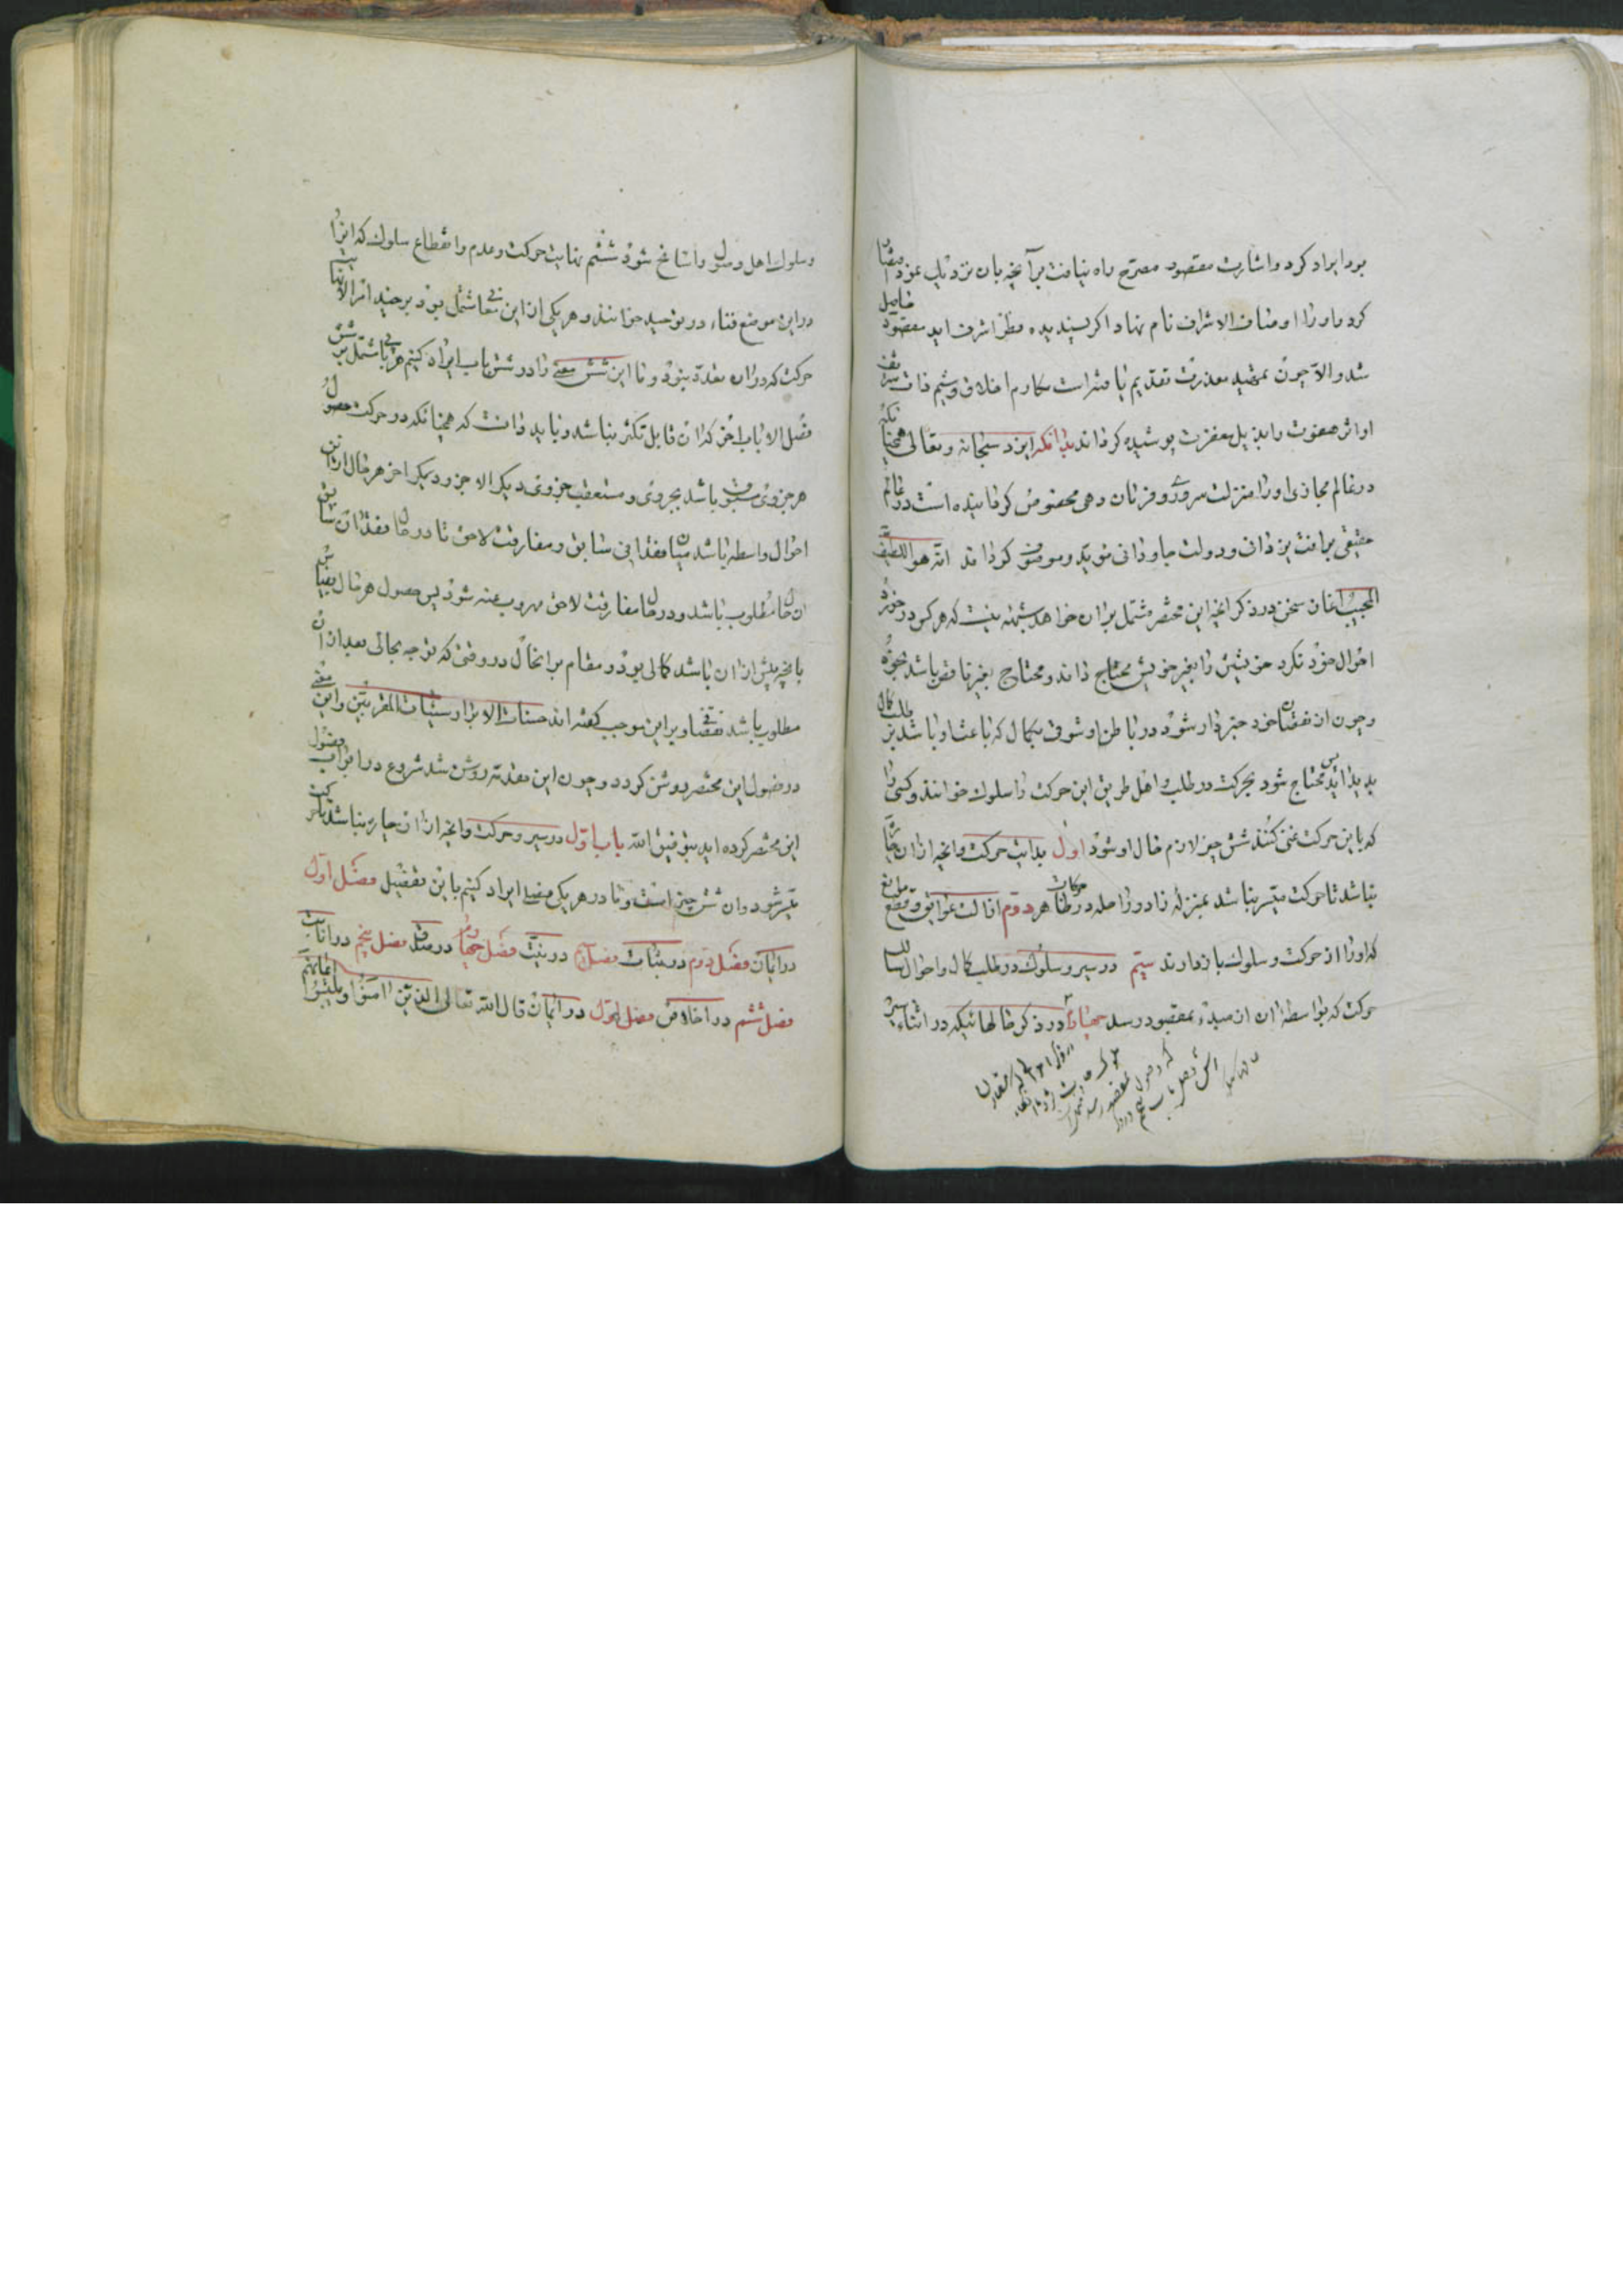 بود ایراد کرد و اشارت مقصود مصرح راه نیافت برآنچه بان نزدیک نمود اقتصار
کرد و او را اوصاف الاشراف نام نهاد اگر پسندیده نظر اشرف اید مقصود حاصل
شد و الا چون تمهید معذرت تقدیم یافته است مکارم اخلاق و شیم ذات شریف
او اثر هفوت را بذیل مغفرت پوشیده گرداند بدانکه ایزد سبحانه و تعالی همچنانکه
در عالم مجازی او را منزلت سروری و فرمان دهی مخصوص گردانیده است در عالم
حقیقی برافت یزدانی و دولت جاودانی موید و موفق گرداند انه هو اللطیف
المجیب اغاز سخن در ذکر انچه این مختصر مشتمل بران خواهد شبهه نیست که هر کس در خود
احوال خود نگرد خویشتن را بغیر خویش محتاج داند و محتاج بغیر ناقص باشد بخود
و چون از نقصان خود خبردار شود در باطن او شوقی بکمال که باعث او باشد بر طلب کمال
پدید اید پس محتاج شود بحرکت در طلب و اهل طریق این حرکت را سلوک خوانند و کسی را
که باین حرکت رغبت کند شش چیز لازم حال او شود اول بدایت حرکت و انچه ازان چاره
نباشد تا حرکت میسر نباشد بمنزله زاد و راحله در حرکات ظاهر دوم ازالت عوایق و قطع موانع
که او را از حرکت و سلوک باز دارند سیم در سیر و سلوک در طلب کمال و احوال سالک
حرکت که بواسطه ان از مبدء بمقصود رسد چهارم در ذکر حالهائیکه در اثناء سیر
و سلوک اهل وصول را سانح شود ششم نهایت حرکت و عدم و انقطاع سلوک که انرا
دراین موضع فناء در توحید خوانند و هر یکی از این معانی مشتمل بود بر چند امر الا نهایت
حرکت که دران تعدد نبود و ما این شش معنی را در شش باب ایراد کنیم هر بابی مشتمل بر شش
فصل الا باب اخر که ان قابل تکثر نباشد و باید دانست که همچنانکه در حرکت حصول
هر جزوی مسبوق باشد بجزوی و مستعقب جزوی دیگر الا جزو دیگر اخر هر حال ازین
احوال واسطه باشد میان فقدانی سابق و مفارقت لاحق تا در حال فقدان سابق
ان حال مطلوب باشد و در حال مفارقت لاحق مهروب عنه شود پس حصول هر حال بقیاس
با انچه پیش ازان باشد کمالی بود و مقام بران حال در وقتی که توجه بحالی بعد ازان
مطلوب باشد نقصان و بر این موجب گفته اند حسنات الابرار سیئات المقربین و این معنی
در فصول این مختصر روشن گردد و چون این مقدمه روشن شد شروع در ابواب و فصول
این مختصر کرده اید بتوفیق الله باب اول در سیر و حرکت و انچه ازان چاره نباشد تا حرکت
میسر شود و ان شش چیز است و ما در هر یکی فصلی ایراد کنیم باین تفصیل فصل اول
در ایمان فصل دوم در ثبات فصل سیم در نیت فصل چهارم در صدق فصل پنجم در انابت
فصل ششم در اخلاص فصل اول در ایمان قال الله تعالی الذین امنوا و لم یلبسوا ایمانهم